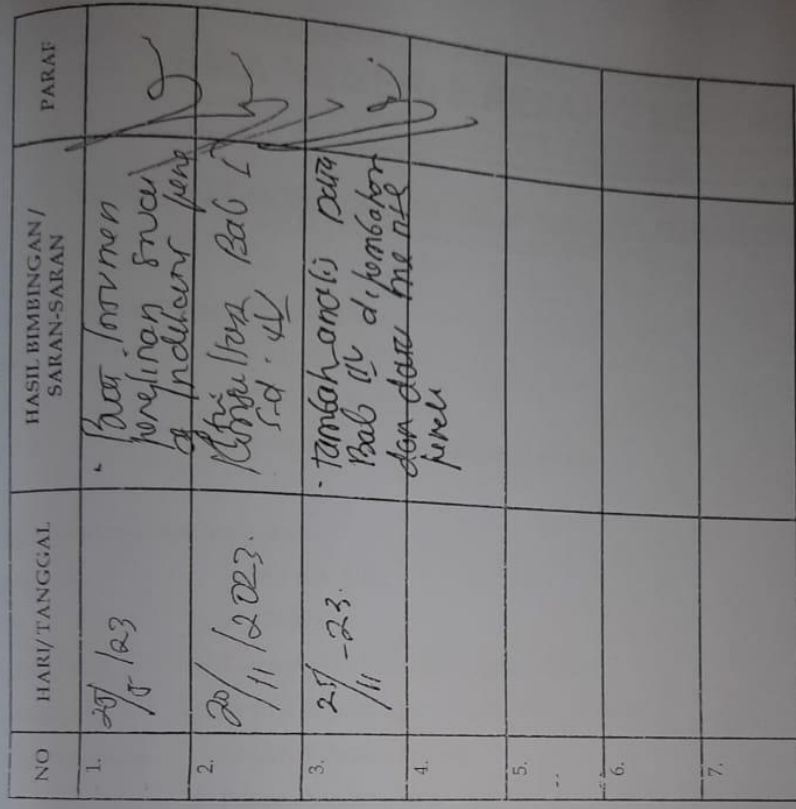 NO HARI/TANGGAL HASIL BIMBINGAN / SARAN-SARAN PARAF
1. 25/5 /23
Buat Instrumen
penelitian sesuai
dg indikator pene
2. 20/11 /2023.
Konsultasi Bab I
s.d. IV
3. 25/11 -23.
- Tambah analisis data
Bab IV di pembahasan
dan data
4.
5.
6.
7.